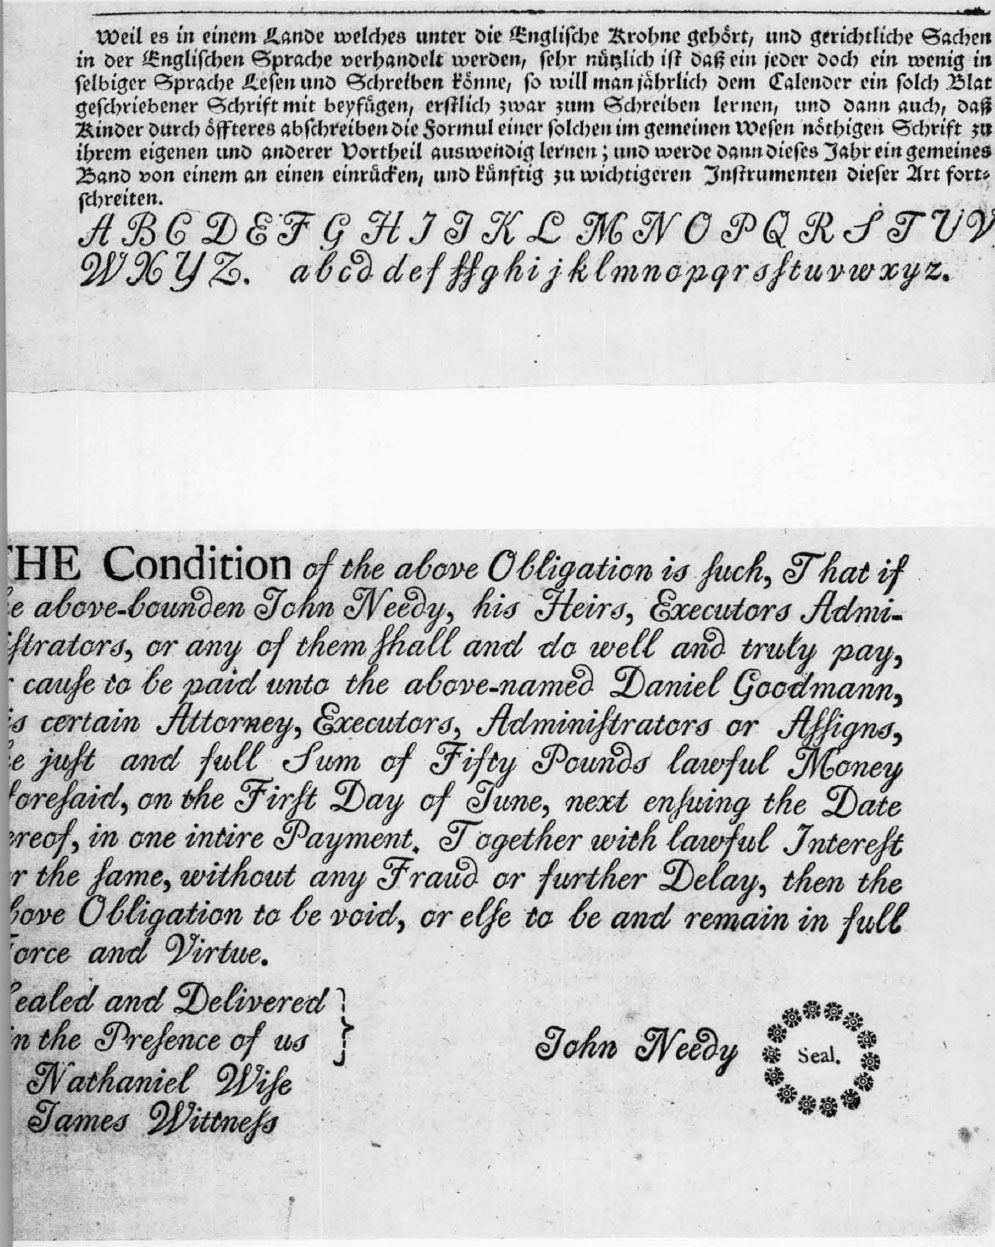 Weil es in einem Lande welches unter die Englische Krohne gehört, und gerichtliche Sachen
in der Englischen Sprache verhandelt werden, sehr nützlich ist daß ein jeder doch ein wenig in
selbiger Sprache Lesen und Schreiben könne, so will man jährlich dem Calender ein solch Blat
geschriebener Schrift mit beyfügen, erstlich zwar zum Schreiben lernen, und dann auch, daß
Kinder durch öffteres abschreiben die Formul einer solchen im gemeinen Wesen nöthigen Schrift zu
ihrem eigenen und anderer Vortheil auswendig lernen; und werde dann dieses Jahr ein gemeines
Band von einem an einen einrücken, und künftig zu wichtigeren Instrumenten dieser Art fort-
schreiten.
A B C D E F G H I J K L M N O P Q R S T U V
W X Y Z. a b c d d e f ſſ g h i j k l m n o p q r s ſt u v w x y z.
THE Condition of the above Obligation is ſuch, That if
e above-bounden John Needy, his Heirs, Executors Admi-
iſtrators, or any of them ſhall and do well and truly pay,
r cauſe to be paid unto the above-named Daniel Goodmann,
is certain Attorney, Executors, Adminiſtrators or Aſſigns,
e juſt and full Sum of Fifty Pounds lawful Money
foreſaid, on the Firſt Day of June, next enſuing the Date
ereof, in one intire Payment. Together with lawful Intereſt
r the ſame, without any Fraud or further Delay, then the
bove Obligation to be void, or elſe to be and remain in full
Force and Virtue.
Sealed and Delivered
in the Preſence of us
John Needy Seal.
Nathaniel Wiſe
James Wittneſs